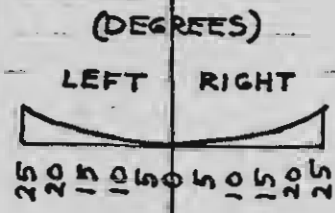 (DEGREES)
LEFT RIGHT
25 20 15 10 5 0 5 10 15 20 25